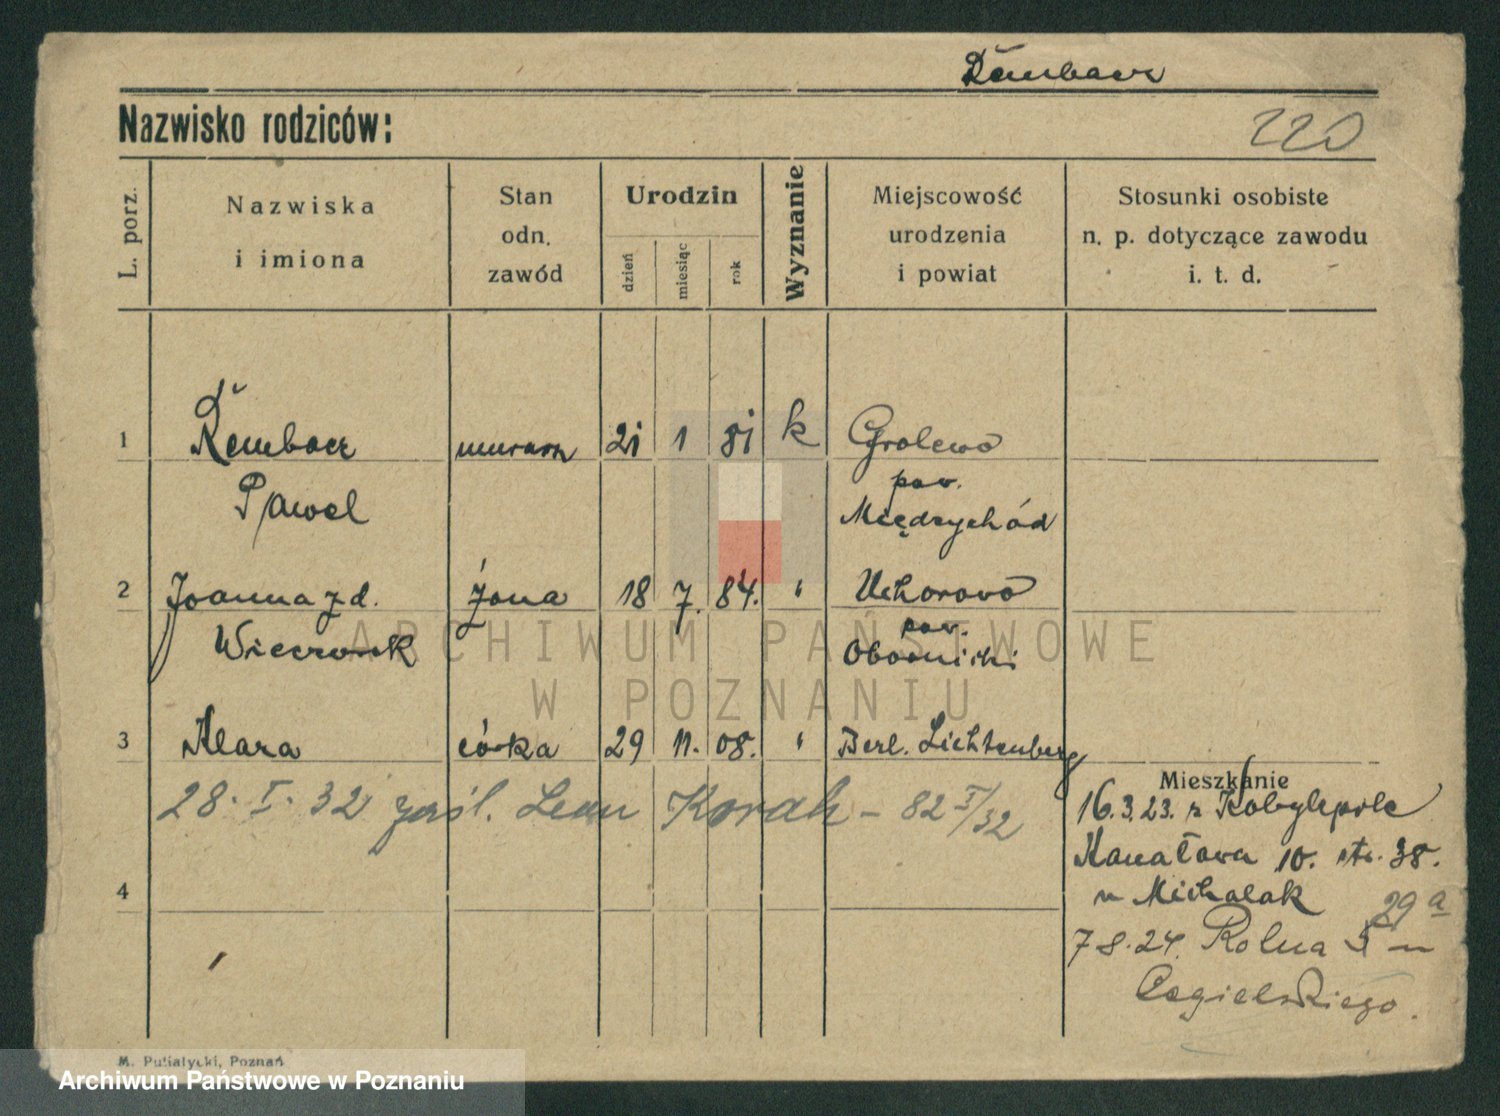 Dembacz
Nazwisko rodziców:
220
L. porz.
Nazwiska
i imiona
Stan
odn.
zawód
Urodzin
dzień
miesiąc
rok
Wyznanie
Miejscowość
urodzenia
i powiat
Stosunki osobiste
n. p. dotyczące zawodu
i. t. d.
1 murarz 21 1 81 k Grolewo
Paweł pow.
Międzychód
2 Joanna z d. żona 18 7. 84. " Uchorowo
Wieczorek pow.
Oborniki
3 Klara córka 29 11. 08. " Berl. Lichtenberg
28. I. 32 zaśl. Leon Korah - 82 I/32
Mieszkanie
16.3.23. z Kobylepole
Kanałowa 10. str. 38.
u Michalak
29a
7 8. 24. Rolna 5 u
Cegielskiego.
4
M. Putiatycki, Poznań
ARCHIWUM PAŃSTWOWE
W POZNANIU
Archiwum Państwowe w Poznaniu